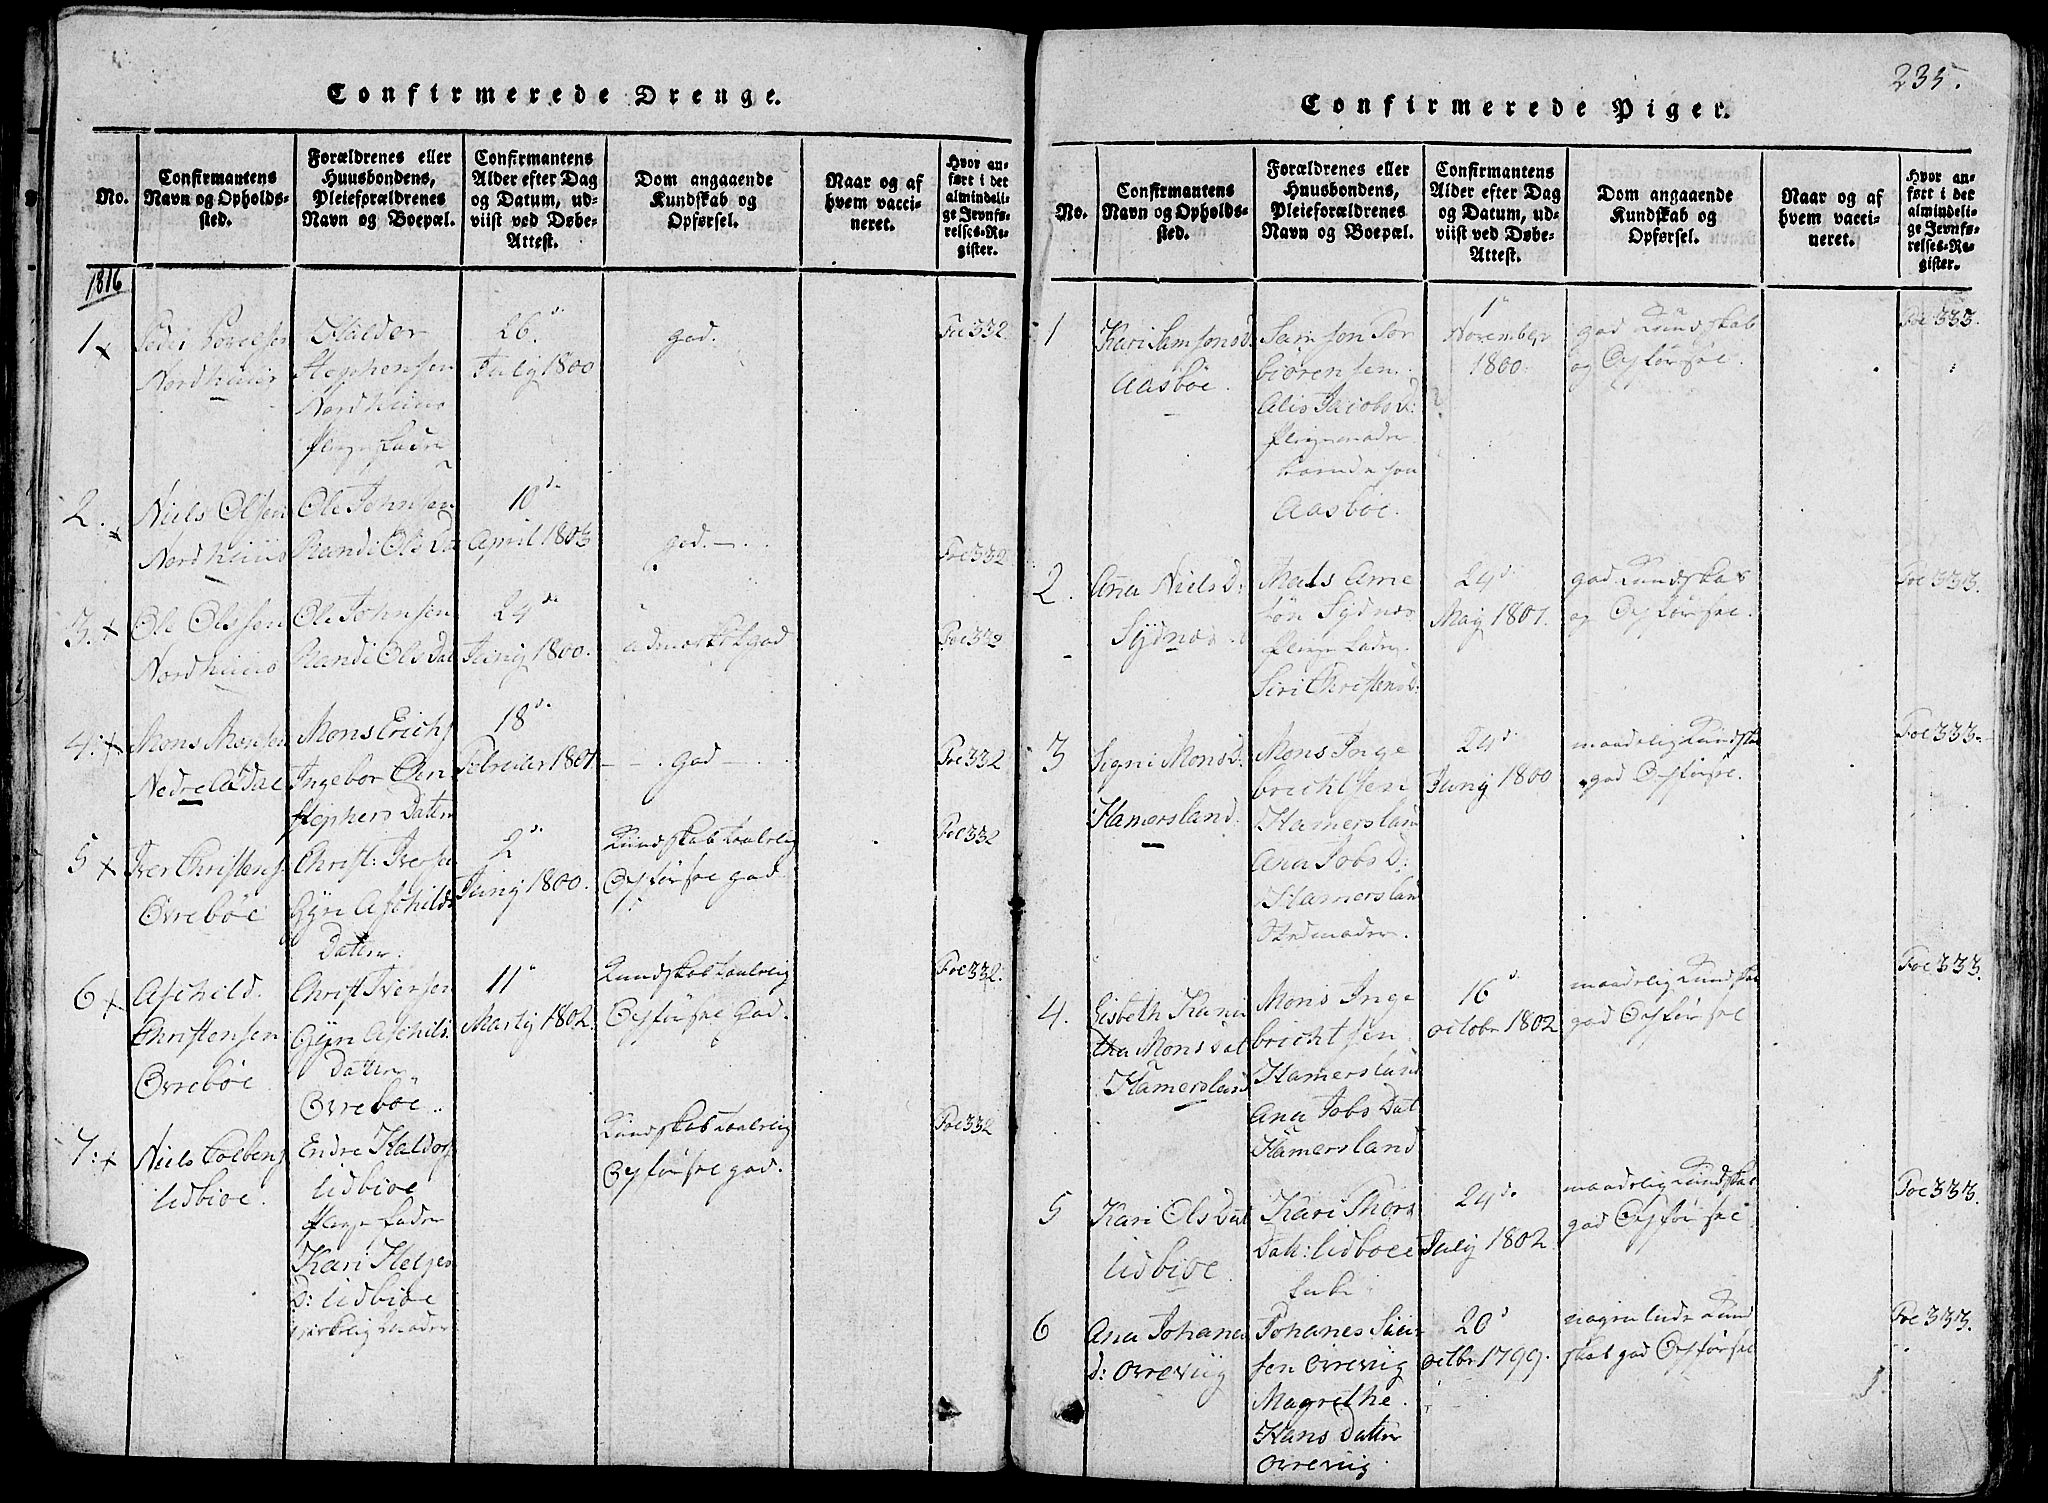 Confirmerede Drenge.
No.
Confirmantens
Navn og Opholds-
sted.
Forældrenes eller
Huusbondens,
Pleieforældrenes
Navn og Boepæl.
Confirmantens
Alder efter Dag
og Datum, ud-
viist ved Døbe-
Attest.
Dom angaaende
Kundskab og
Opførsel.
Naar og af
hvem vacci-
neret.
Hvor an-
ført i det
almindeli-
ge Jevnfø-
relses-Re-
gister.
1816
1
Peder
Nordhuus
Halder
Stephensen
Nordhuus
26
July 1800
god.
332
2.
Niels Olsen
Nordhuus
Ole Johnsen
Randi Ols Da
10
April 1803
god.
Foe 332
3.
Ole Olssen
Nordhuus
Ole Johnsen
Randi Ols Dat
24
Junij 1800.
god
Foe 332
4.
Mons Monsen
Nedre Aadal
Mons Erichs
Ingebor
Stephens Datter
18
1801
god
Foe 332
5
Iver Christens
Ovrebøe
Christ: Iversen
Gÿri Aschilds
Datter.
2
Junij 1800.
Kundskab
Opførsel god
Foe 332
6
Aschild
Christensen
Ovrebøe
Christ Iversen
Gÿri Aschils
Datter
Ovrebøe.
11
Martij 1802.
Kundskab
Opførsel God.
Foe 332.
7.
Niels
Udbiøe.
Endre Haldors
Udbiøe
Kari Helges
D: Udbiøe
virkelig Moder
Kundskab
Opførsel god.
Foe 332
235.
Confirmerede Piger.
No.
Confirmantens
Navn og Opholds-
sted.
Forældrenes eller
Huusbondens,
Pleieforældrenes
Navn og Boepæl.
Confirmantens
Alder efter Dag
og Datum, ud-
viist ved Døbe-
Attest.
Dom angaaende
Kundskab og
Opførsel.
Naar og af
hvem vacci-
neret.
Hvor an-
ført i det
almindeli-
ge Jevnfø-
relses-Re-
gister.
1
Kari Samsons D.
Aasbøe.
Samson Tor
biørensen.
Alis Jacobs D:
Aasbøe.
1
November
1800.
god Kundskab
og Opførsel.
Foe 333.
2.
Ana Niels D:
Sydnæs.
Mats Ame
Sydnæs
Siri Christens D:
24
May 1801.
god Kundskab
og Opførsel.
Foe 333.
3
Signi Mons D:
Hamersland.
Mons Inge
brichtsen
Hamersland
Ana Jobs D:
Hamersland
Stedmoder.
24
Junij 1800
maadelig Kundska
god Opførsel.
Foe 333.
4.
Lisbeth
Mons Dat
Hamersland
Mons Inge
brichtsen.
Hamersland
Ana Jobs Dat
Hamersland
16
octobr 1802
maadelig Kundska
god Opførsel
Foe 333.
5
Kari Ols Dat
Udbiøe.
Kari Thors
Dat: Udbøe
Enke
24
July 1802.
maadelig Kundskab
god Opførsel
Foe 333.
6
Ana Johanes
d: Ovrevig
Johanes
sen Ovrevig
Magrethe.
Hans Datter
Ovrevig
20
octbr 1799.
nogenlunde Kund
skab god Opførsel
Foe 333.